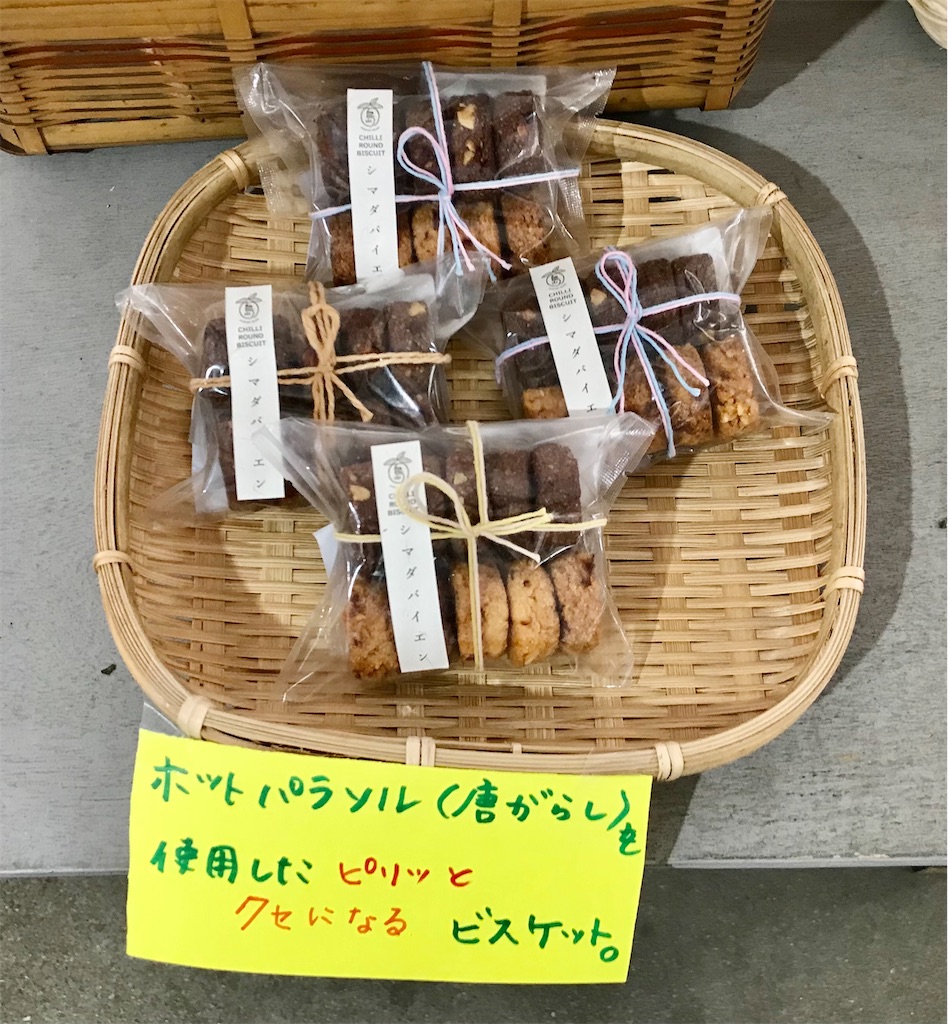 CHILLI
ROUND
BISCUIT
シマダバイエ
CHILLI
ROUND
BISCUIT
シマダバイエ
CHILLI
ROUND
BISCUIT
シマダバイエン
CHILLI
ROUND
BISCUIT
シマダバイエン
ホットパラソル(唐がらし)を
使用したピリッと
クセになる ビスケット。